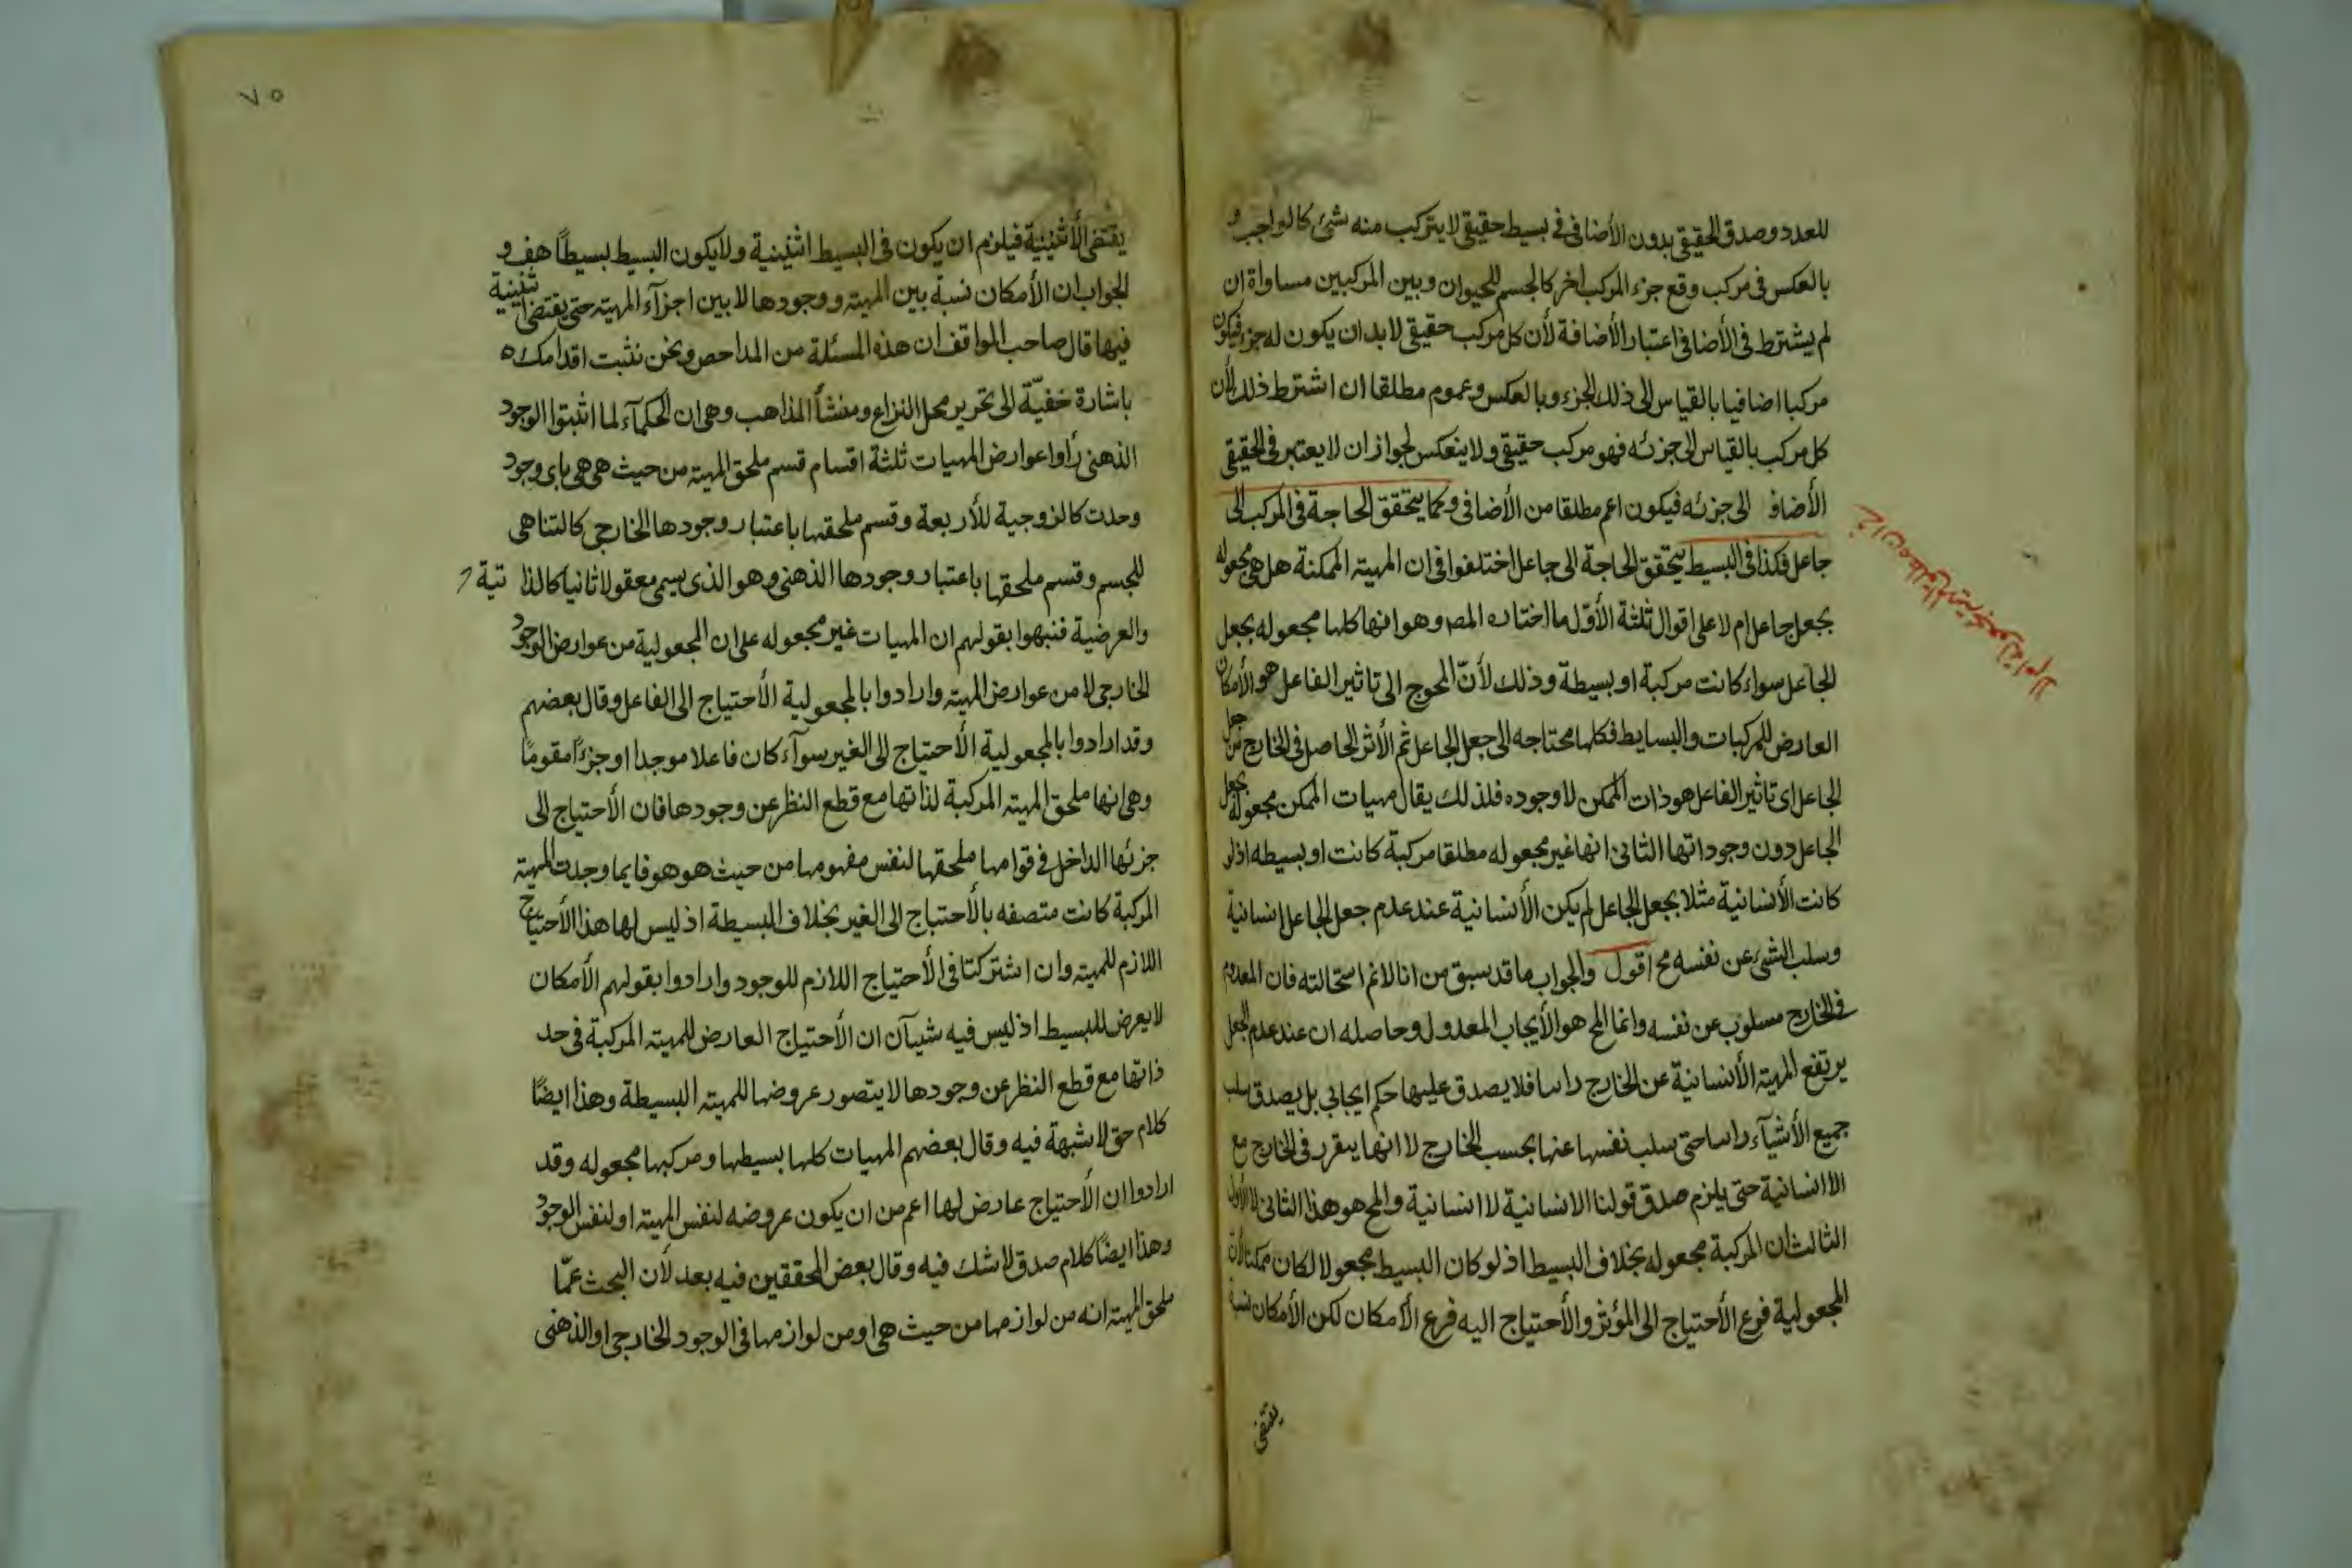 للعدد وصدق الحقيقى بدون الأضافى فى بسيط حقيقى لا يتركب منه شئ كالواجب و
بالعكس فى مركب وقع جزء المركب اخر كالجسم للحيوان وبين المركبين مساواة ان
لم يشترط فى الأضافى اعتبار الأضافة لأن كل مركب حقيقى لا بد ان يكون له جزء فيكون
مركبا اضافيا بالقياس الى ذلك الجزء وبالعكس وعموم مطلقا ان اشترط ذلك لأن
كل مركب بالقياس الى جزئه فهو مركب حقيقى ولا ينعكس لجواز ان لا يعتبر فى الحقيقى
الأضاف الى جزئه فيكون اعم مطلقا من الأضافى وكما يتحقق الحاجة فى المركب الى
جاعل فكذا فى البسيط يتحقق الحاجة الى جاعل اختلفوا فى ان المهيته الممكنة هل هى مجعوله
بجعل جاعل ام لا على اقوال ثلثة الأوّل ما اختاره المص وهو انها كلها مجعوله بجعل
الجاعل سواء كانت مركبة او بسيطة وذلك لأنّ المحوج الى تاثير الفاعل هو الأمكان
العارض للمركبات والبسايط فكلها محتاجه الى جعل الجاعل ثم الأثر الحاصل فى الخارج من جعل
الجاعل اى تاثير الفاعل هو ذات الممكن لا وجوده فلذلك يقال مهيات الممكن مجعوله بجعل
الجاعل دون وجوداتها الثانى انها غير مجعوله مطلقا مركبة كانت او بسيطه اذ لو
كانت الأنسانية مثلا بجعل الجاعل لم يكن الأنسانية عند عدم جعل الجاعل انسانية
وسلب الشئ عن نفسه مح اقول والجواب ما قد سبق من انا لا نم استحالته فان المعدوم
فى الخارج مسلوب عن نفسه وانما المح هو الأيجاب المعدول وحاصله ان عند عدم الجعل
يرتفع المهيته الأنسانية عن الخارج راسا فلا يصدق عليها حكم ايجابى بل يصدق سلب
جميع الأشيآء راسا حتى سلب نفسها عنها بحسب الخارج لا انها يتقرر فى الخارج مع
الاانسانية حتى يلزم صدق قولنا الانسانية لا انسانية والمح هو هذا الثانى لا الأول
الثالث ان المركبة مجعوله بخلاف البسيط اذ لو كان البسيط مجعولا لكان ممكنا لأن
المجعولية فرع الأحتياج الى المؤثر والأحتياج اليه فرع الأمكان لكن الأمكان نسبة
يقتضى
٧٥
يقتضى الأثنينية فيلزم ان يكون فى البسيط اثنينية ولا يكون البسيط بسيطاً هف و
الجواب ان الأمكان نسبة بين المهيته ووجودها لا بين اجزآء المهيته حتى يقتضى اثنينية
فيها قال صاحب المواقف ان هذه المسئلة من المداحص ونحن نثبت اقدامك
باشارة خفيّة الى تحرير محل النزاع ومنشأ المذاهب وهى ان الحكمآء لما اثبتوا الوجود
الذهنى رأوا عوارض المهيات ثلثة اقسام قسم ملحق المهيته من حيث هى هى باى وجود
وجدت كالزوجية للأربعة وقسم ملحقها باعتبار وجودها الخارجى كالتناهى
للجسم وقسم ملحقها باعتبار وجودها الذهنى وهو الذى يسمى معقولا ثانيا كالذا تية
والعرضية فنبهوا بقولهم ان المهيات غير مجعوله على ان المجعولية من عوارض الوجود
الخارجى لا من عوارض المهيته وارادوا بالمجعولية الأحتياج الى الفاعل وقال بعضهم
وقد ارادوا بالمجعولية الأحتياج الى الغير سوآء كان فاعلا موجدا او جزءًا مقومًا
وهى انها ملحق المهيته المركبة لذاتها مع قطع النظر عن وجودها فان الأحتياج الى
جزئها الداخل فى قوامها ملحقها لنفس مفهومها من حيث هو هو فايما وجدت المهيته
المركبة كانت متصفه بالأحتياج الى الغير بخلاف البسيطة اذ ليس لها هذا الأحتياج
اللازم للمهيته وان اشتركتا فى الأحتياج اللازم للوجود وارادوا بقولهم الأمكان
لا يعرض للبسيط اذ ليس فيه شيآن ان الأحتياج العارض للمهيته المركبة فى حد
ذاتها مع قطع النظر عن وجودها لا يتصور عروضها للمهيته البسيطة وهذا ايضًا
كلام حق لا شبهة فيه وقال بعضهم المهيات كلها بسيطها ومركبها مجعوله وقد
ارادوا ان الأحتياج عارض لها اعم من ان يكون عروضه لنفس المهيته او لنفس الوجود
وهذا ايضًا كلام صدق لا شك فيه وقال بعض المحققين فيه بعد لأن البحث عمّا
ملحق المهيته انه من لوازمها من حيث هى او من لوازمها فى الوجود الخارجى او الذهنى